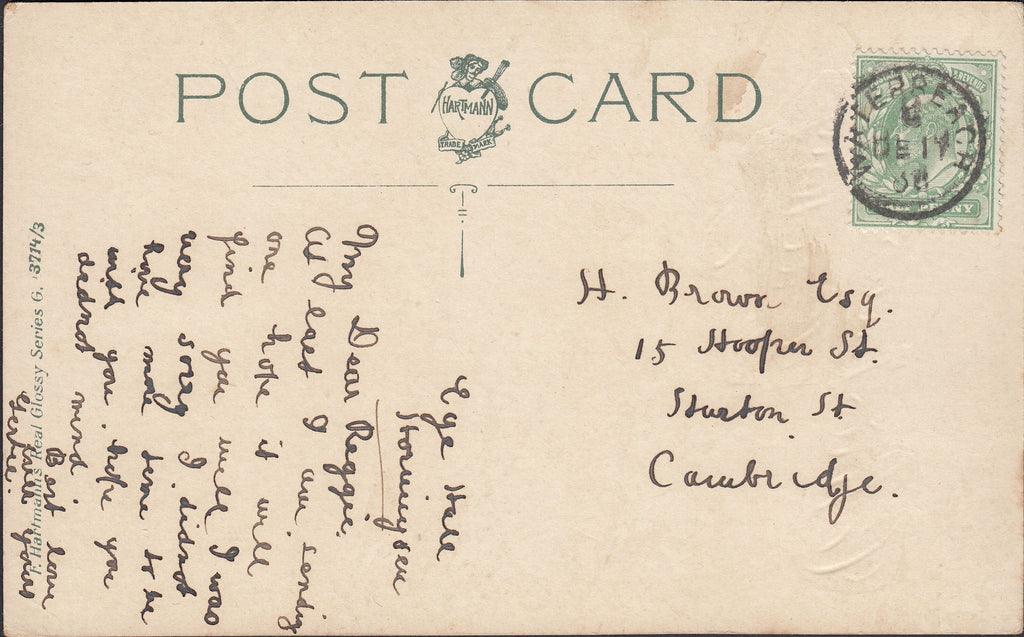 POST CARD
HARTMANN
TRADE MARK
WATERBEACH
DE 17
H. Brown Esq.
15 Hooper St.
Sturton St
Cambridge.
Eye Hall
My Dear Reggie.
At last I am sending
one hope it will
find you well I was
very sorry I didnot
have more time to be
with you. hope you
didnot mind
Best love
from yours
Gertie.
F. Hartmann's Real Glossy Series G. 3714/3